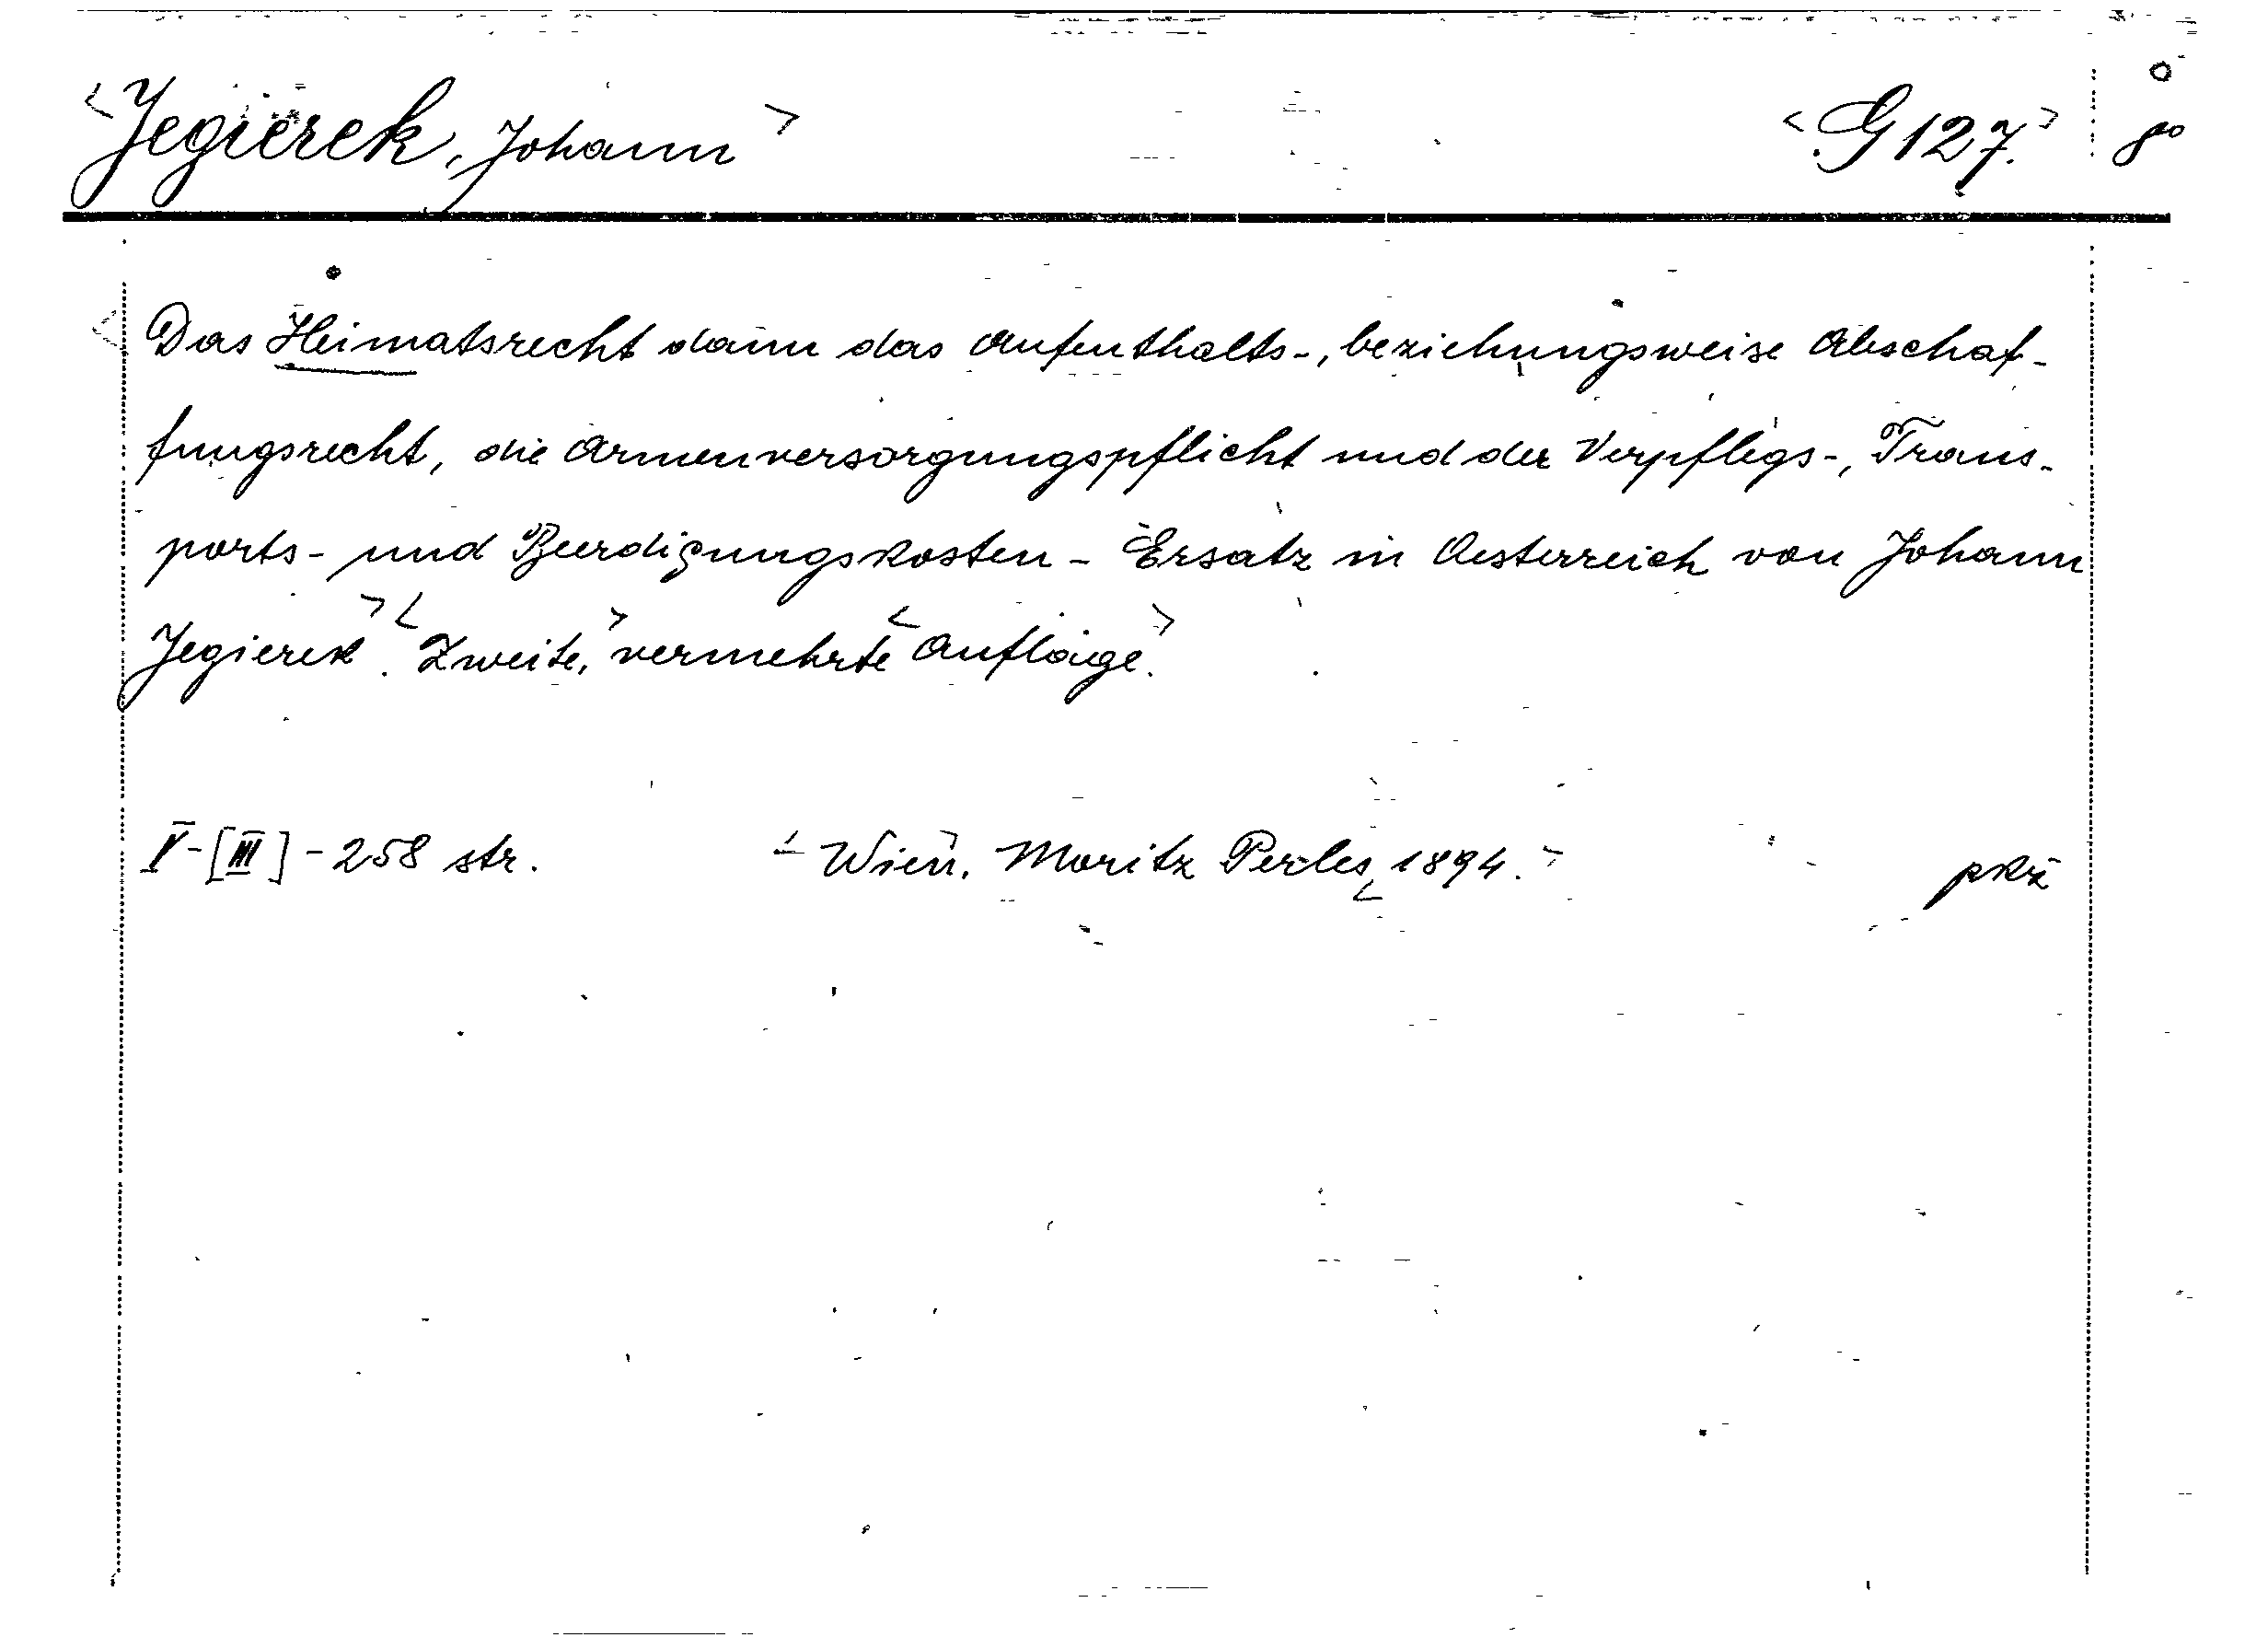 <Jegierek, Johann> <G 127.> 8°
<Das Heimatsrecht dann das Aufenthalts-, beziehungsweise Abschaf-
fungsrecht, die Armenversorgungspflicht und der Verpflegs-, Trans-
ports- und Beerdigungskosten - Ersatz in Oesterreich von Johann
Jegierek>. <Zweite,> vermehrte <Auflage.>
V-[III]-258 str. <Wien>. Moritz Perles, <1894.> pkž